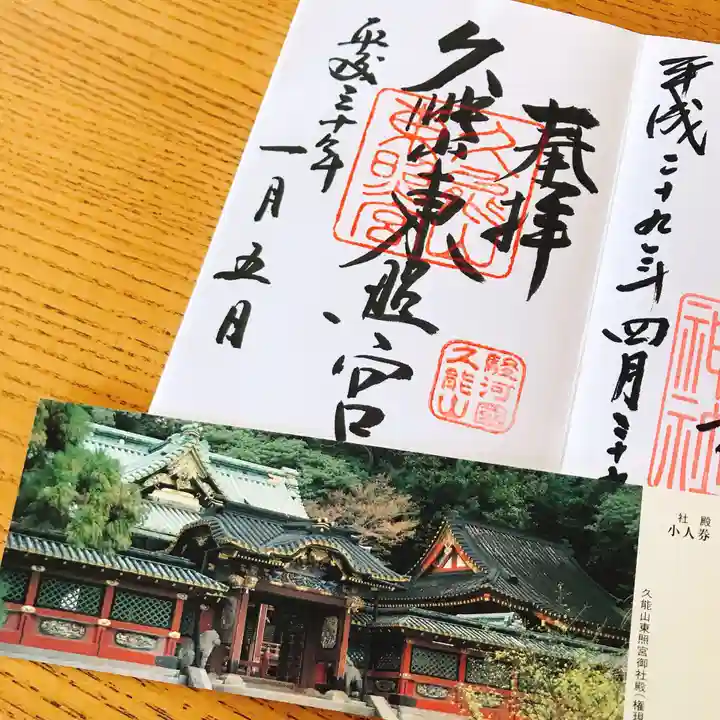 平成二十九年四月
神社
奉拝
久能山東照宮
久能山
東照宮
駿河國
久能山
平成三十年
一月五日
社殿
小人券
久能山東照宮御社殿(権現